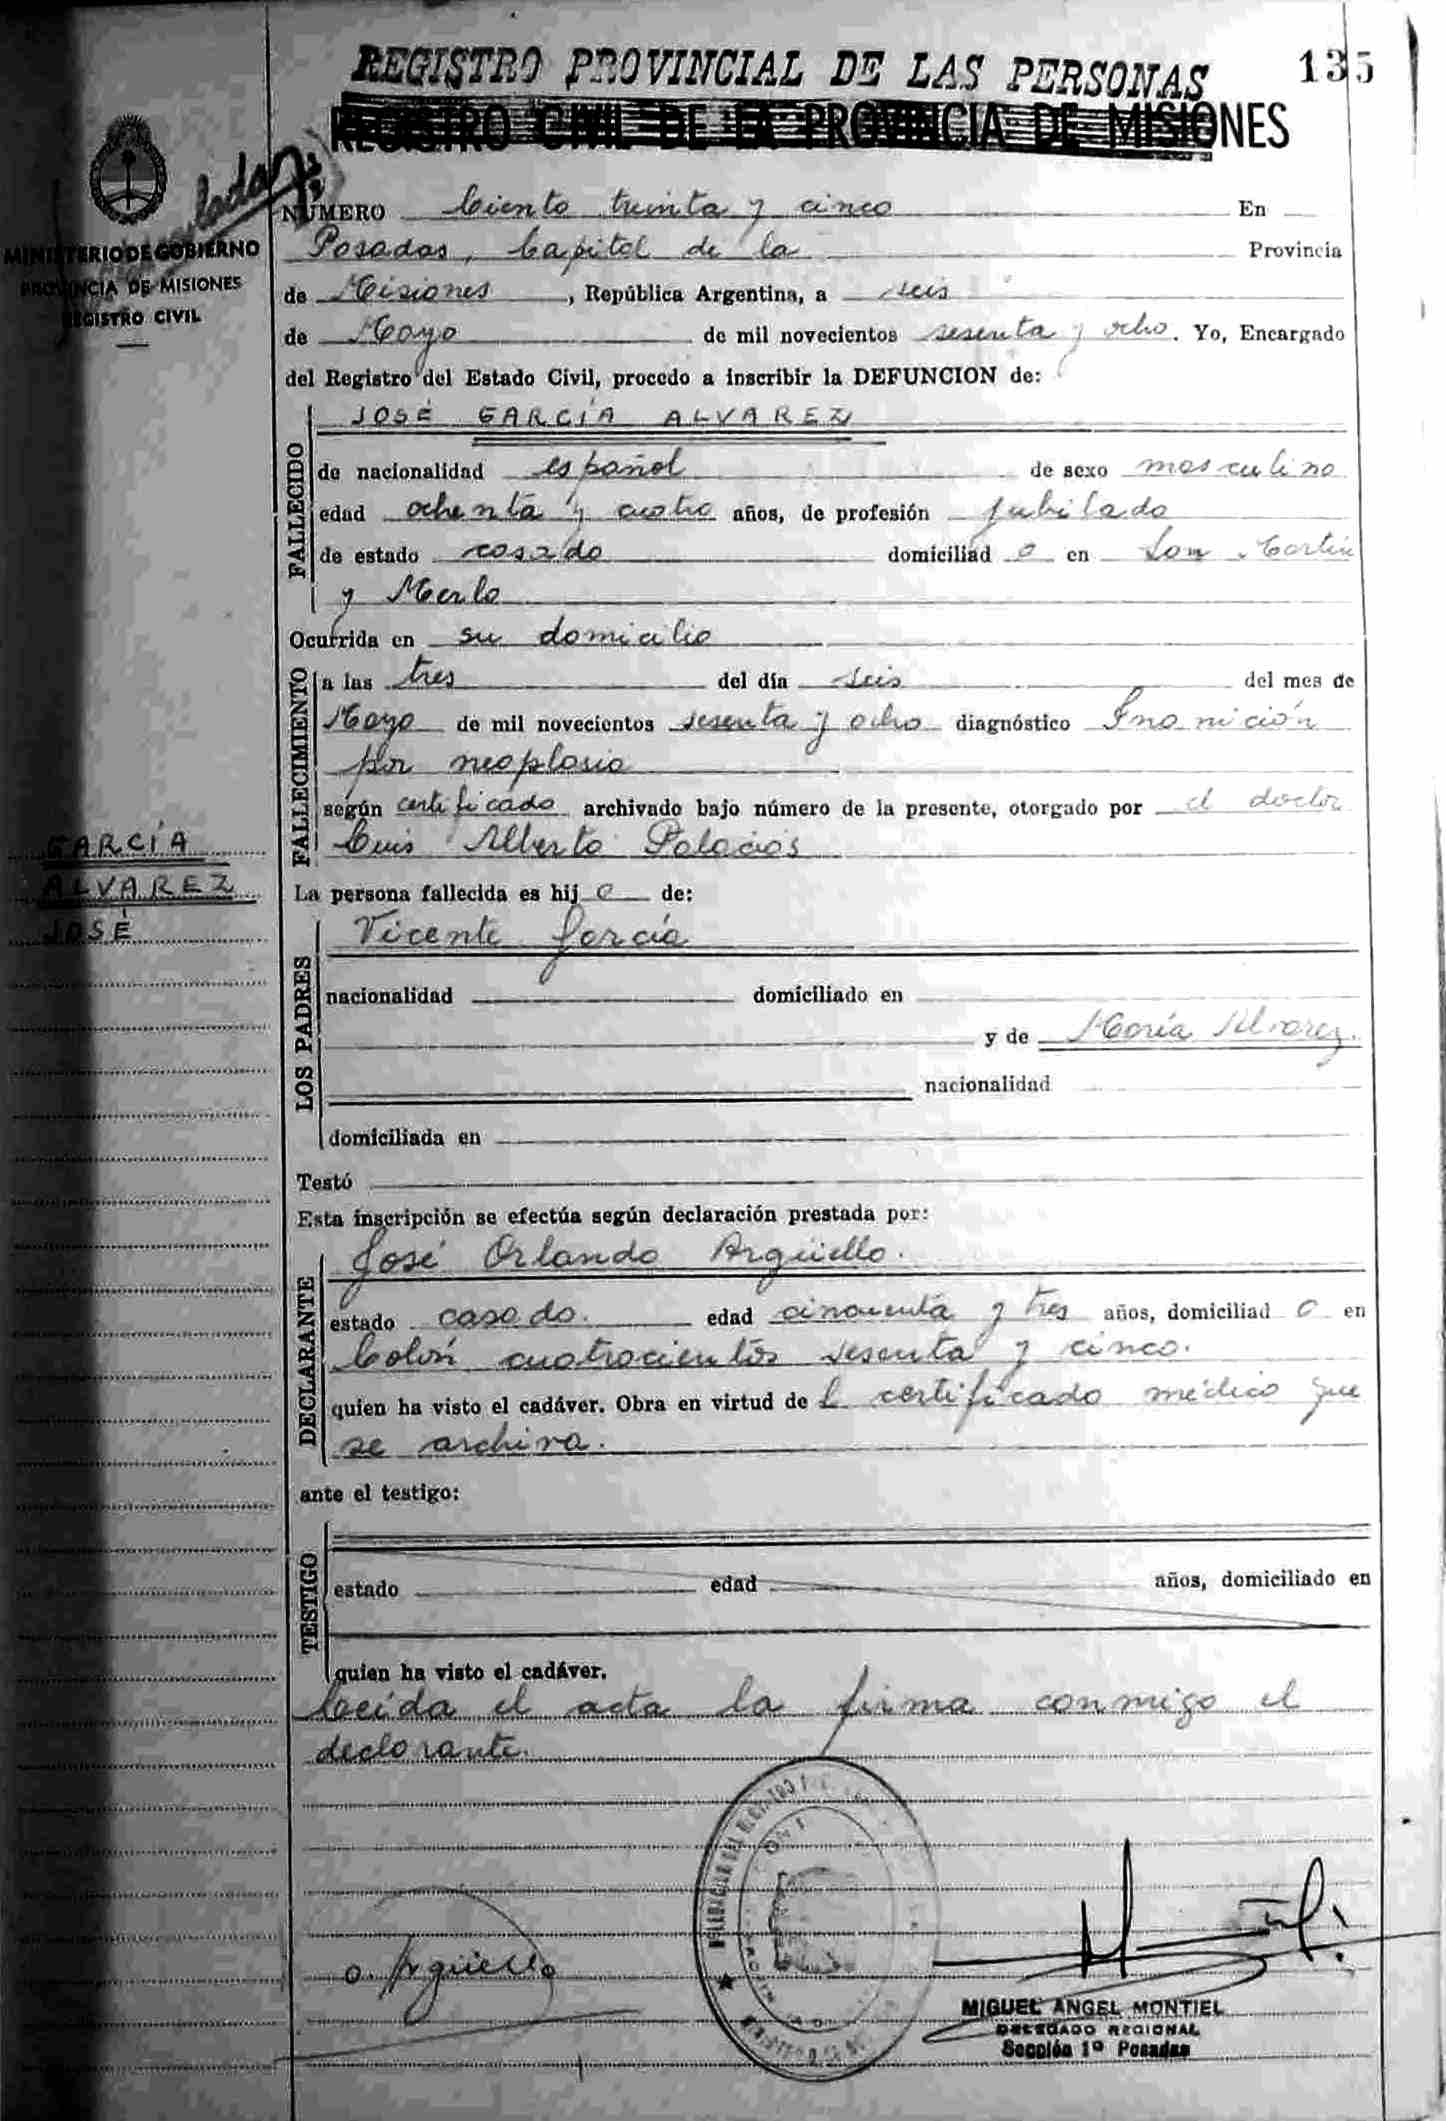 REGISTRO PROVINCIAL DE LAS PERSONAS
135
REGISTRO CIVIL DE LA PROVINCIA DE MISIONES
MINISTERIO DE GOBIERNO
PROVINCIA DE MISIONES
REGISTRO CIVIL
NUMERO Ciento treinta y cinco En
Posadas, Capital de la Provincia
de Misiones, República Argentina, a seis
de Mayo de mil novecientos sesenta y ocho. Yo, Encargado
del Registro del Estado Civil, procedo a inscribir la DEFUNCION de:
JOSÉ GARCÍA ALVAREZ
FALLECIDO
de nacionalidad español de sexo masculino
edad ochenta y cuatro años, de profesión jubilado
de estado casado domiciliad o en San Martín
y Merlo
Ocurrida en su domicilio
FALLECIMIENTO
a las tres del día seis del mes de
Mayo de mil novecientos sesenta y ocho diagnóstico Inanición
por neoplasia
según certificado archivado bajo número de la presente, otorgado por el doctor
Luis Alberto Palacios
GARCÍA
ALVAREZ
JOSÉ
La persona fallecida es hij o de:
LOS PADRES
Vicente García
nacionalidad domiciliado en
y de María Alvarez.
nacionalidad
domiciliada en
Testó
Esta inscripción se efectúa según declaración prestada por:
DECLARANTE
José Orlando Argüello.
estado casado. edad cincuenta y tres años, domiciliad o en
Colón cuatrocientos sesenta y cinco.
quien ha visto el cadáver. Obra en virtud de l certificado médico que
se archiva.
ante el testigo:
TESTIGO
estado edad años, domiciliado en
quien ha visto el cadáver.
Leída el acta la firma conmigo el
declarante.
O. Argüello
MIGUEL ANGEL MONTIEL
DELEGADO REGIONAL
Sección 1º Posadas